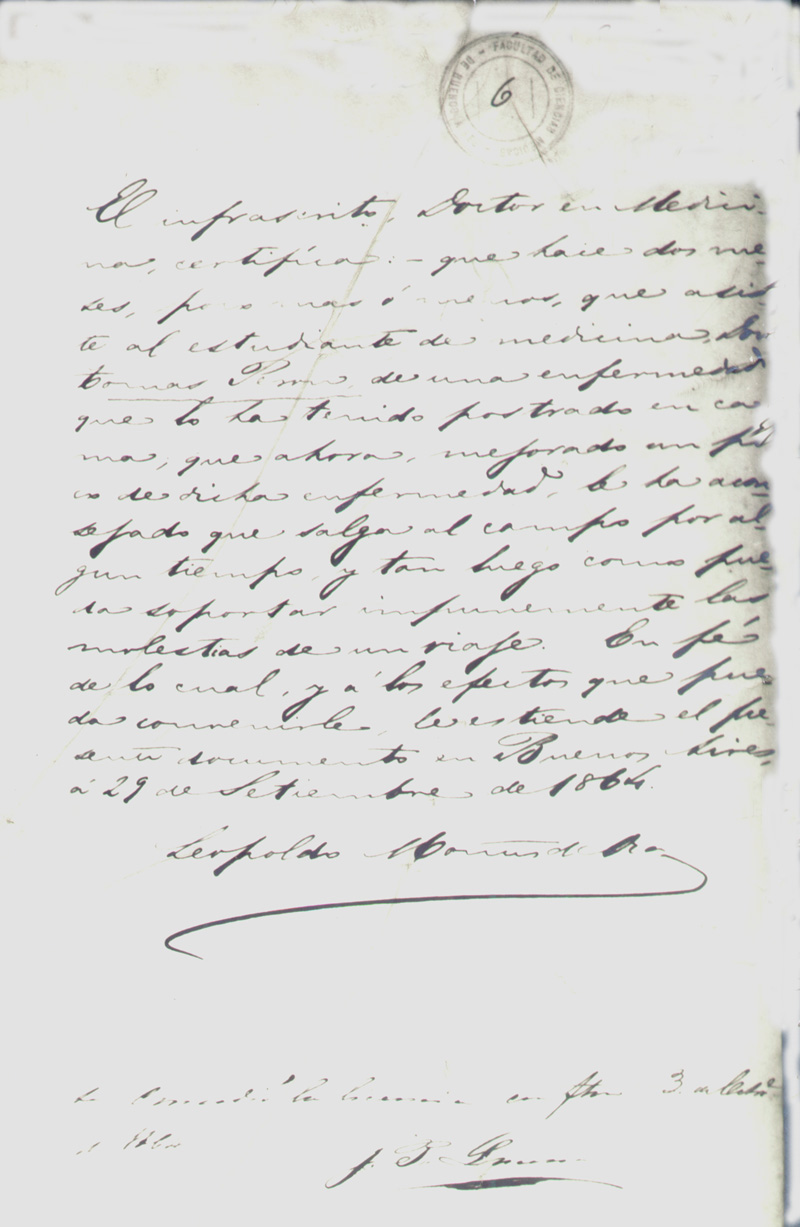 FACULTAD DE CIENCIAS
DE BUENOS
6
El infrascrito, Doctor en Medici-
na, certifíca: – que hace dos me-
ses, poco mas ó menos, que asis-
te al estudiante de medicina Don
Tomas de una enfermedad
que lo ha tenido postrado en ca
ma, que ahora, mejorado un po
co de dicha enfermedad, le ha acon-
sejado que salga al campo por al-
gun tiempo, y tan luego como pue-
da soportar impunemente las
molestias de un viaje. En fé
de lo cual, y á los efectos que pue-
da convenirle, le estiende el pre
sente documento en Buenos Aires,
á 29 de Setiembre de 1864.
Leopoldo Montes de Oca
se concedió la licencia en 3 de Octe
de
J. P.